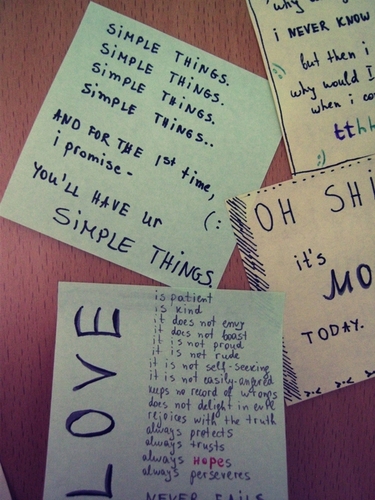 SIMPLE THINGS.
SIMPLE THINGS.
SIMPLE THINGS.
SIMPLE THINGS..
AND FOR THE 1st time,
i promise-
YOU'LL HAVE ur (:
SIMPLE THINGS.
why
i NEVER KNOW
but then i
why would I
when i co
tthh
:)
OH SHI
it's
MO
TODAY.
LOVE
is patient
is kind
it does not envy
it does not boast
it is not proud
it is not rude
it is not self-seeking
it is not easily-angered
keeps no record of wrongs
does not delight in evil
rejoices with the truth
always protects
always trusts
always HOPEs
always perseveres
NEVER FAILS